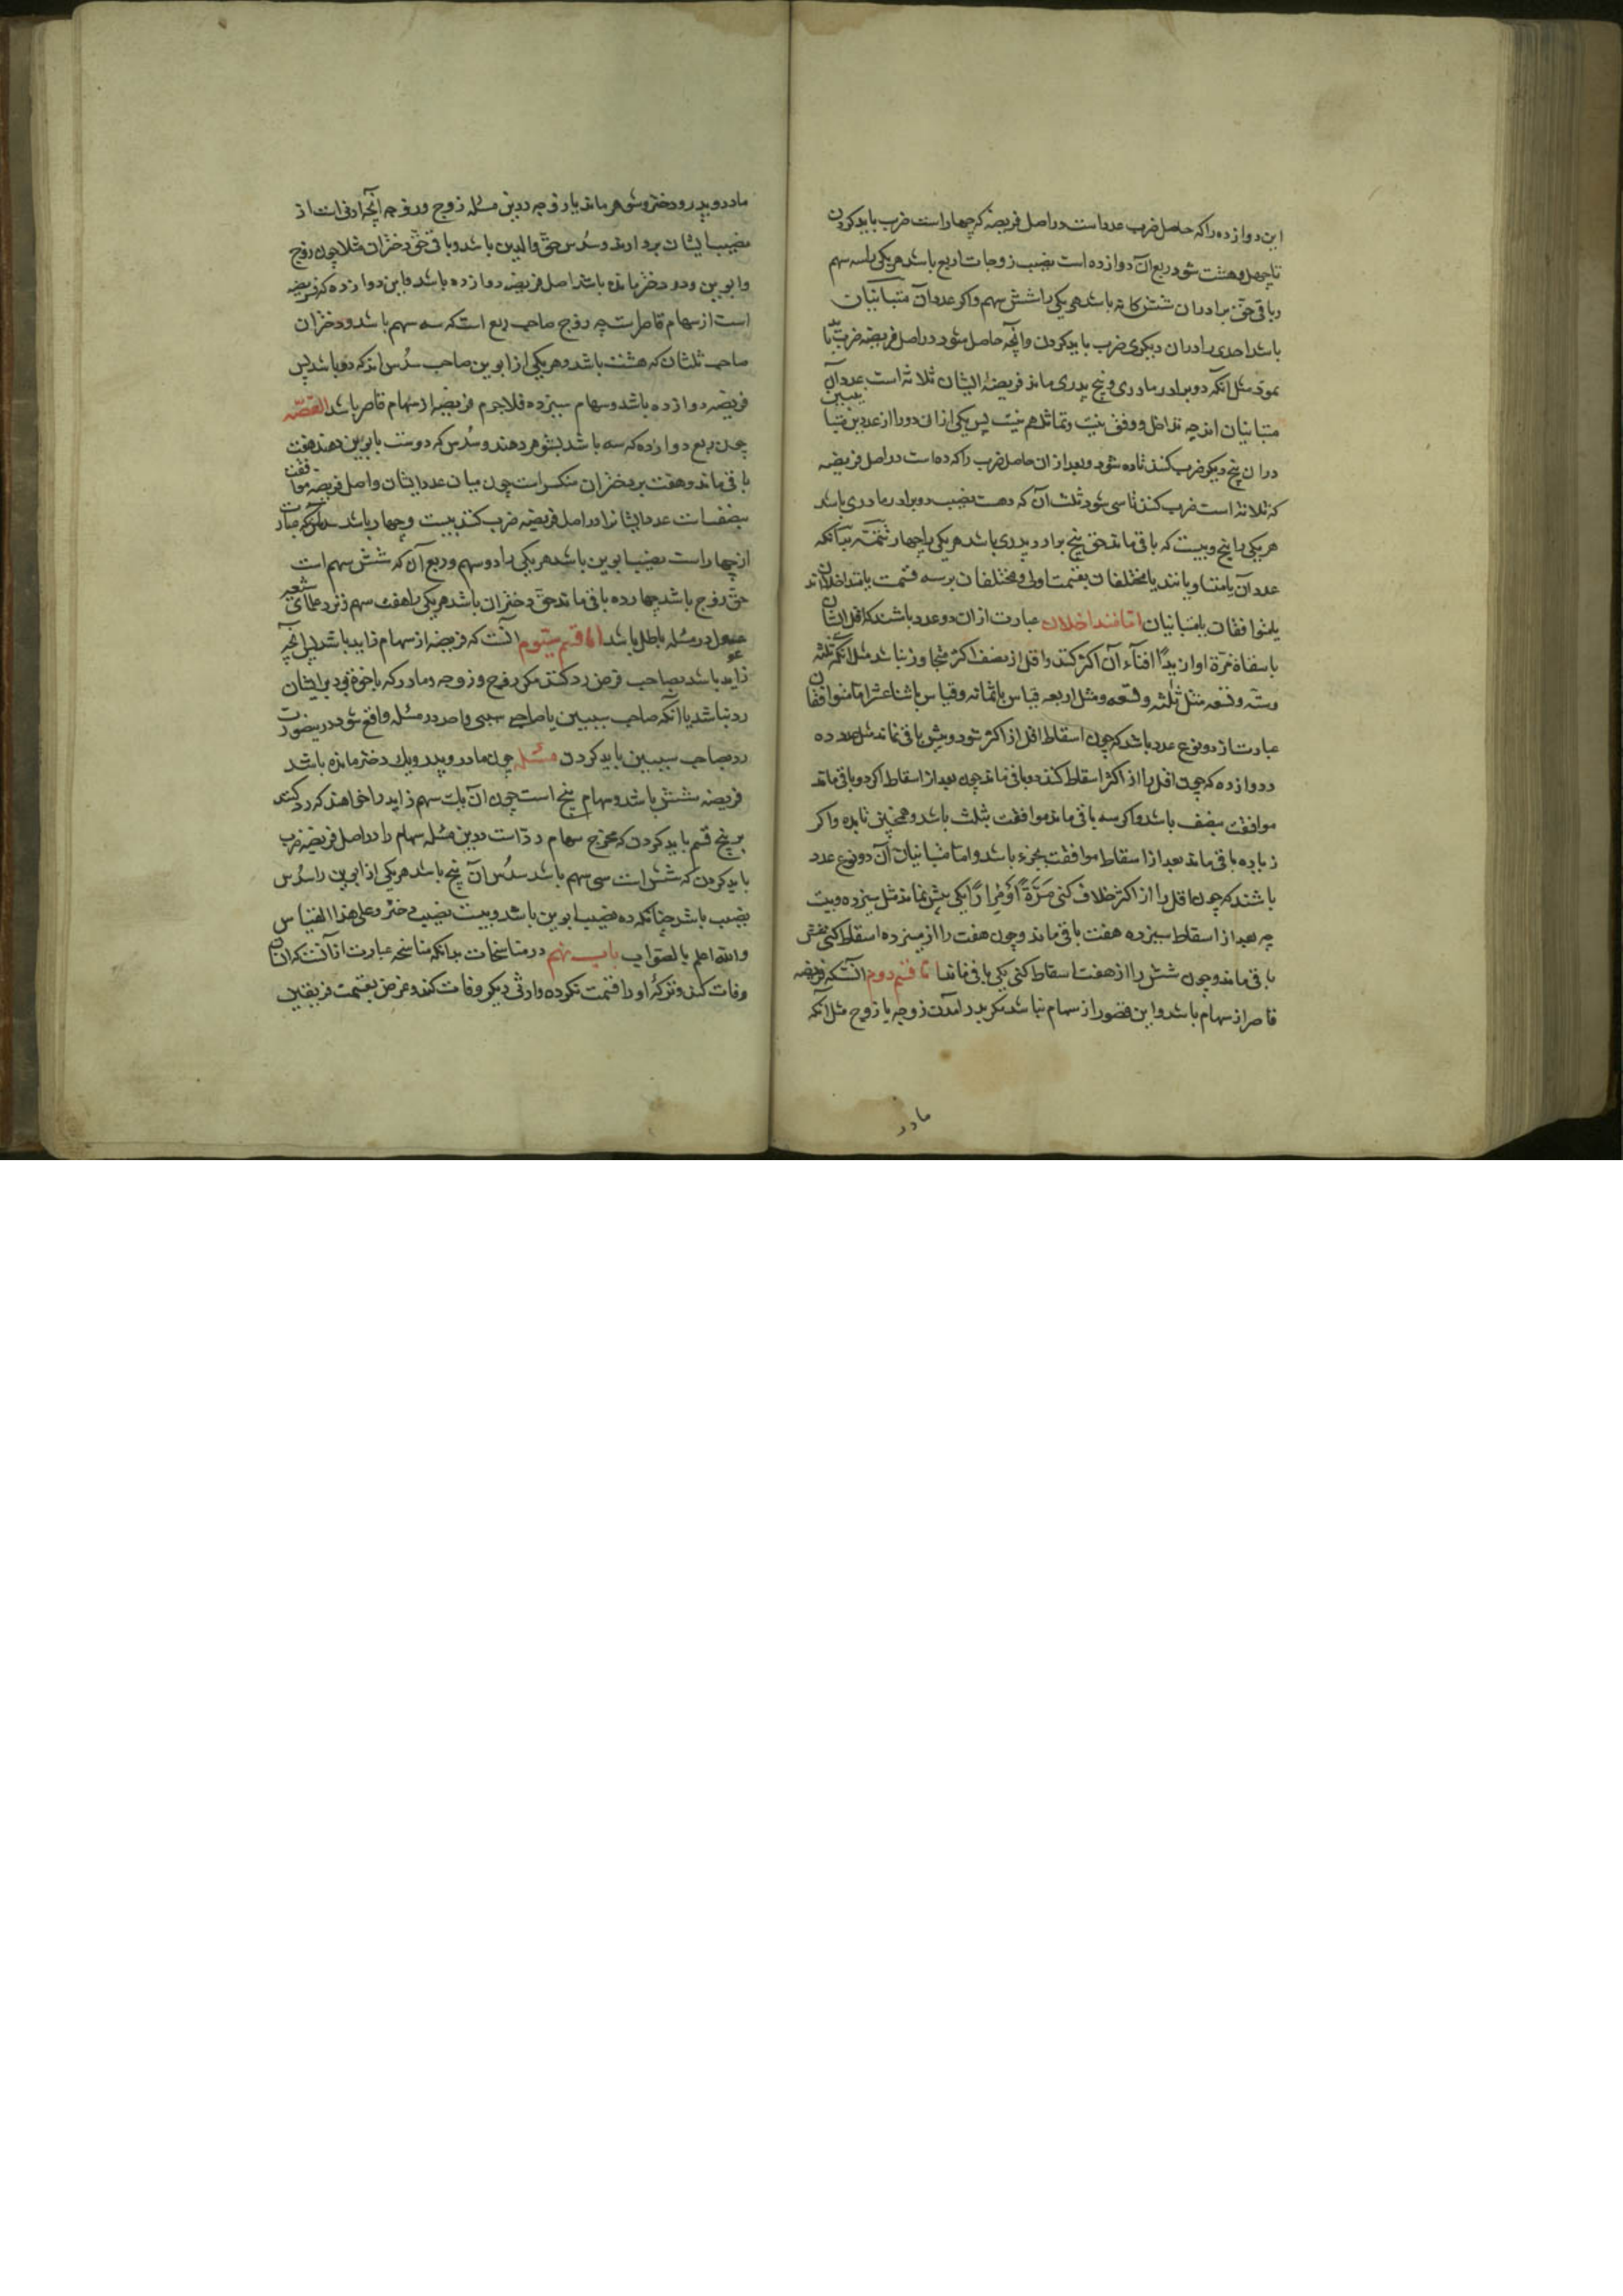 این دوازده را که حاصل ضرب عدد است در اصل فریضه که چهار است ضرب باید کردن
تا چهل و هشت شود ربع آن دوازده است نصیب زوجات اربع باشد هر یکی را سه سهم
و باقی حق برادران شش کانه باشد هر یکی را شش سهم و اکر عدد آن متباینان
باشد احدی را در ان دیکری ضرب باید کردن و انچه حاصل شود در اصل فریضه ضرب باید
نمود مثل انکه دو برادر مادری و پنج پدری ماند فریضه ایشان ثلاثه است عدد آن
متباینان اند چه تداخل و وفق نیست و تماثل هم نیست پس یکی از ان دو را از عددین متباینین
در ان پنج دیکر ضرب کنند تا ده شود و بعد از ان حاصل ضرب را که ده است در اصل فریضه
که ثلاثه است ضرب کنند تا سی شود ثلث آن که ده است نصیب دو برادر مادری باشد
هر یکی را پنج و بیست که باقی ماند حق پنج برادر پدری باشد هر یکی را چهار تتمة بدانکه
عدد آن یا متساویانند یا مختلفان بقسمت اولی و مختلفان بر سه قسمت یا متداخلان اند
یا متوافقان یا متباینان اما متداخلان عبارت از ان دو عدد باشند که اقل ایشان
باسقاط مرة او ازیداً افنآء آن اکثر کند و اقل از نصف اکثر متجاوز نباشد مثل انکه ثلثه
و سته و تسعه مثل ثلثه و تسعه و مثل اربعه قیاس با ثمانه و قیاس با اثنا عشر اما متوافقان
عبارت از دو نوع عدد باشد که چون اسقاط اقل از اکثر شود و بیش باقی نماند مثل عدد ده
و دوازده که چون اقل را از اکثر اسقاط کنند دو باقی ماند چون بعد از اسقاط اکر دو باقی ماند
موافقت بنصف باشد و اکر سه باقی ماند موافقت بثلث باشد و همچنین تا بده و اکر
زیاده باقی ماند بعد از اسقاط موافقت بجزء باشد و اما متباینان آن دو نوع عدد
باشند که چون اقل را از اکثر خلاف کنی مَرَّةً اَوْ مِراراً یکی بیش نماند مثل سیزده و بیست
چه بعد از اسقاط سیزده هفت باقی ماند و چون هفت را از سیزده اسقاط کنی شش
باقی ماند و چون شش را از هفت اسقاط کنی یکی باقی ماند اما قسم دوم آنست که فریضه
قاصر از سهام باشد و این قصور از سهام نباشد مکر بدر آمدن زوجه یا زوج مثل آنکه
مادر
مادر و پدر و دختر و شوهر ماند یا زوجه در این مسئله زوج و زوجه آنچه ادنی است از
نصیب ایشان بردارند و سُدس حق والدین باشد و باقی حق دختران مثلا چون زوج
و ابوین و دو دختر مانده باشد اصل فریضه دوازده باشد و این دوازده که فریضه
است از سهام قاصر است چه زوج صاحب ربع است که سه سهم باشد و دختران
صاحب ثلثان که هشت باشد و هر یکی از ابوین صاحب سُدس اند که دو باشد پس
فریضه دوازده باشد و سهام سیزده فلاجرم فریضه از سهام قاصر باشد القصّه
چون ربع دوازده که سه باشد بشوهر دهند و سُدس که دو ست بابوین دهند هفت
باقی ماند و هفت بر دختران منکسر است چون میان عدد ایشان و اصل فریضه موافقت
بنصف است عدد ایشانرا در اصل فریضه ضرب کنند بیست و چهار باشد
از چهار است نصیب ابوین باشد هر یکی را دو سهم و ربع آن که شش سهم است
حق زوج باشد چهارده باقی ماند حق دختران باشد هر یکی را هفت سهم و نزد علمای شیعه
عول در مسئله باطل باشد اما قسم سیّوم آنست که فریضه از سهام زاید باشد پس آنچه
زاید باشد بصاحب فرض رد کنند مکر زوج و زوجه و مادر که با اخوة بود بر ایشان
رد نباشد یا آنکه صاحب سببین با صاحب سببی واحد در مسئله واقع شود در ینصورت
رد بصاحب سببین باید کردن مسئله چون مادر و پدر و یک دختر مانده باشد
فریضه شش باشد و سهام پنج است چون آن یک سهم زاید را خواهند که رد کنند
بر پنج قسم باید کردن که مخرج سهام رد است در این مسئله سهام را در اصل فریضه ضرب
باید کردن که شش است سی سهم باشد سُدس آن پنج باشد هر یکی از ابوین را سُدس
نصیب باشد چنانکه ده نصیب ابوین باشد و بیست نصیب دختر و علی هذا القیاس
والله اعلم بالصّواب باب نهم در مناسخات بدانکه مناسخه عبارت از آنست که انسان
وفات کند و ترکهٔ او را قسمت نکرده وارثی دیکر وفات کند و غرض بقسمت فریقین